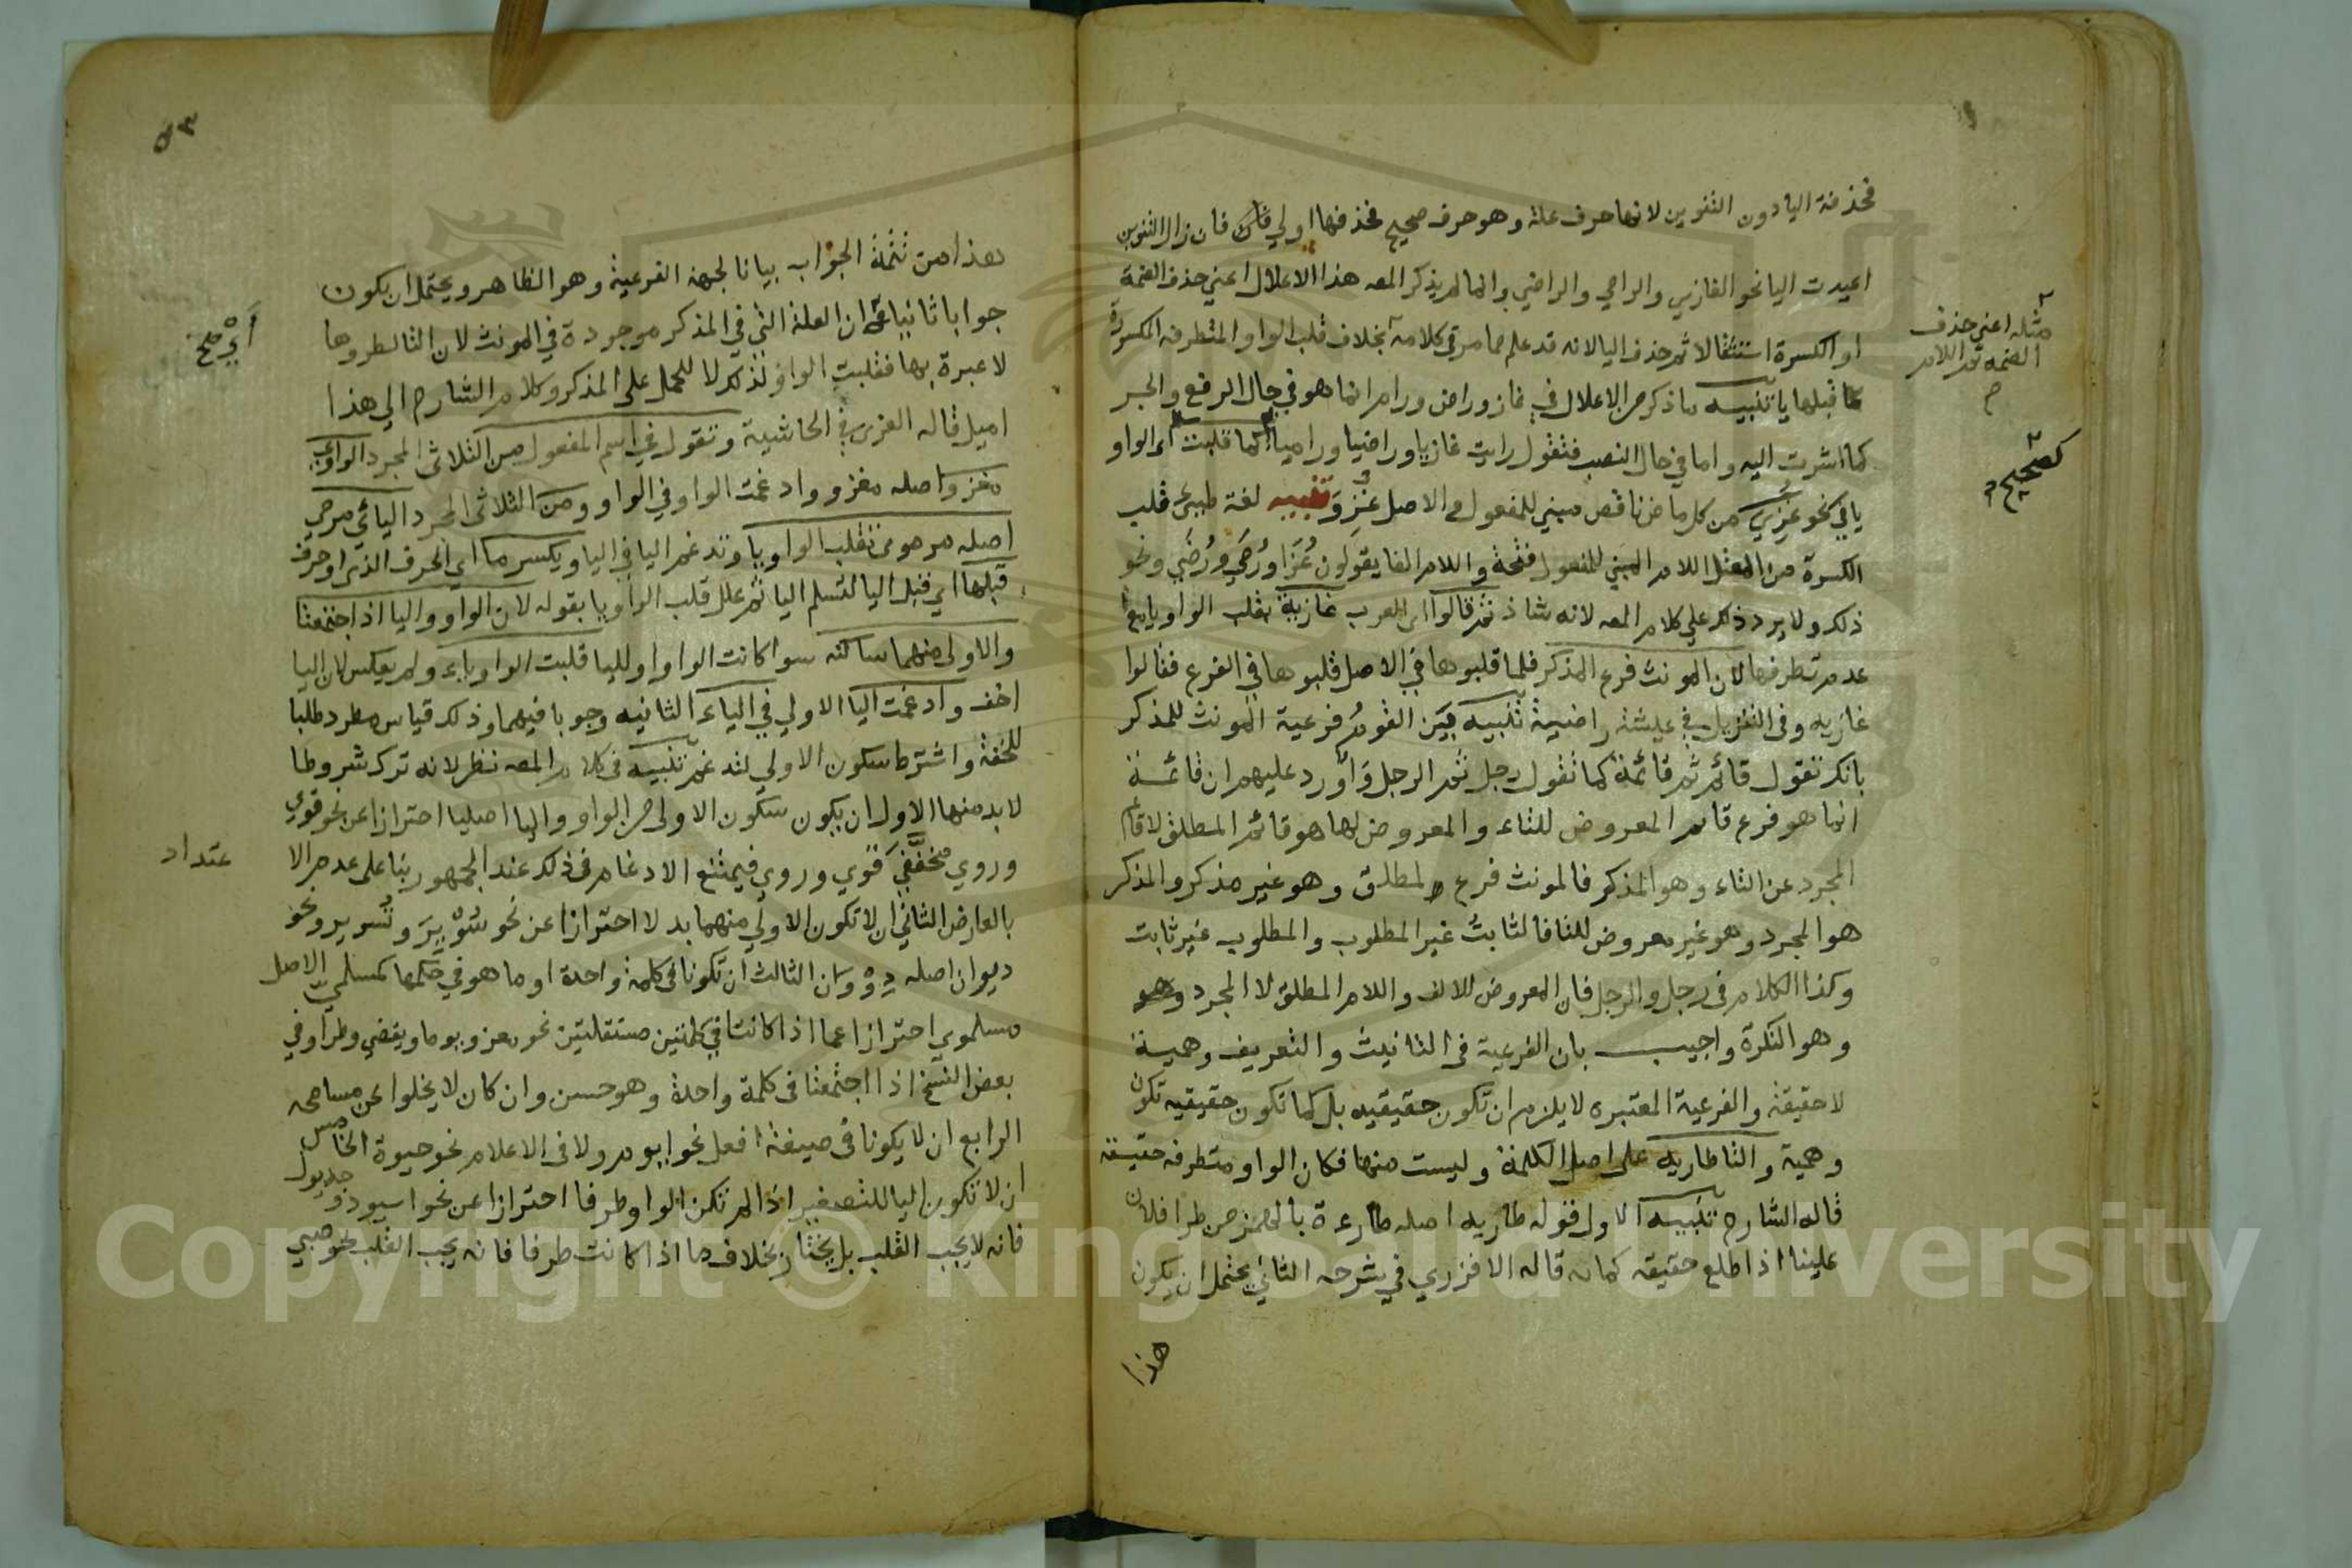 فحذفة اليا دون التنوين لانها حرف علة وهو حرف صحيح فحذفها اولي فان زال التنوين
اعيدت اليا نحو الغازي والرامي والراضي وانما لم يذكر المصه هذا الاعلال اعني حذف الضمة
او الكسرة استثقالا ثم حذف اليا لانه قد علم مما مر في كلامه بخلاف قلب الواو المتطرفه المكسورة
مثله اعني حذف
الضمه ثم اللام
ما قبلها يا تنبيه ما ذكر من الاعلال في غاز وراض ورام انما هو في حال الرفع والجر
كما اشرت اليه واما في حال النصب فتقول رايت غازيا وراضيا وراميا كما قلبت اي الواو
كصحيح
يا في نحو غزي من كل ماض ناقص مبني للمفعول والاصل غزو تنبيه لغة طيئ قلب
الكسرة من المعتل اللام المبني للمفعول فتحة واللام الفا يقولون غزا ورمي ورضي ونحو
ذلك ولا يرد ذلك علي كلام المصه لانه شاذ ثم قالوا اي العرب غازية بقلب الواو يا مع
عدم تطرفها لان المونث فرع المذكر فلما قلبوها في الاصل قلبوها في الفرع فقالوا
غازيه وفي التنزيل في عيشة راضية تنبيه بين القوم فرعية المونث للمذكر
بانك تقول قائم ثم قائمة كما تقول رجل ثم الرجل واورد عليهم ان قائمة
انما هو فرع قائم المعروض للتاء والمعروض لها هو قائم المطلق لا قائم
المجرد عن التاء وهو المذكر فالمونث فرع المطلق وهو غير مذكر والمذكر
هو المجرد وهو غير معروض للتا فالثابت غير المطلوب والمطلوب غير ثابت
وكذا الكلام في رجل والرجل فان المعروض للالف واللام المطلق لا المجرد وهو
وهو النكرة واجيب بان الفرعية في التانيث والتعريف وهمية
لا حقيقة والفرعية المعتبره لا يلزم ان تكون حقيقيه بل كما تكون حقيقيه تكون
وهمية والتا طاريه على اصل الكلمة وليست منها فكان الواو متطرفه حقيقة
قاله الشارح تنبيه الاول قوله طاريه اصله طارءة بالهمز من طرا فلان
علينا اذا طلع حقيقه كمانه قاله الافزري في شرحه الثاني يحتمل ان يكون
هذا
٥٣
هذا من تتمة الجواب بيانا لجهة الفرعية وهو الظاهر ويحتمل ان يكون
جوابا ثانيا ان العلة التي في المذكر موجودة في المونث لان التا لطروها
لا عبرة بها فقلبت الواو لذلك لا للحمل على المذكر وكلام الشارح الي هذا
اميل قاله الغزي في الحاشية وتقول في اسم المفعول من الثلاثي المجرد الواوي
مغزو اصله مغزوو ادغمت الواو في الواو ومن الثلاثي المجرد اليائي مرمي
اصله مرموي تقلب الواو يا وتدغم اليا في اليا ويكسر ما اي الحرف الذي
قبلها اي قبل اليا لتسلم اليا ثم علل قلب الواو يا بقوله لان الواو واليا اذا اجتمعتا
والاولى منهما ساكنه سوا كانت الواو او اليا قلبت الواو ياء ولم يعكس لان اليا
اخف وادغمت اليا الاولي في الياء الثانيه وجوبا فيهما وذلك قياس مطرد طلبا
للخفة واشترط سكون الاولي لتدغم تنبيه في كلام المصه نظر لانه ترك شروطا
لا بد منها الاول ان يكون سكون الاولي من الواو واليا اصليا احترازا عن نحو قوي
وروي مخففي قوي وروي فيمتنع الادغام في ذلك عند الجمهور بنا على عدم الا
عتداد
بالعارض الثاني ان لا تكون الاولي منهما بدلا احترازا عن نحو سوير وتسوير ونحو
ديوان اصله دووان الثالث ان تكونا في كلمة واحدة او ما هو في حكمها كمسلمي الاصل
مسلموي احترازا عما اذا كانتا في كلمتين مستقلتين نحو يغزو يوما ويقضي وطرا وفي
بعض النسخ اذا اجتمعتا في كلمة واحدة وهو حسن وان كان لا يخلوا عن مسامحه
الرابع ان لا يكونا في صيغة افعل نحو ايوم ولا في الاعلام نحو حيوة الخامس
ان لا تكون اليا للتصغير اذا لم تكن الواو طرفا احترازا عن نحو اسيود وجديول
فانه لا يجب القلب بل يختار بخلاف ما اذا كانت طرفا فانه يجب القلب نحو صبي
Copyright © King Saud University